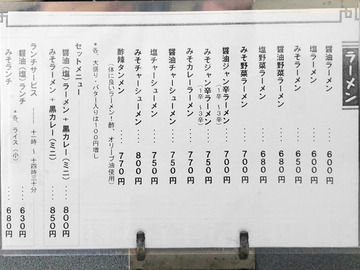 ラーメン
醤油ラーメン ‥‥ 600円
塩ラーメン ‥‥ 600円
みそラーメン ‥‥ 650円
醤油野菜ラーメン ‥‥ 680円
塩野菜ラーメン ‥‥ 680円
みそ野菜ラーメン ‥‥ 700円
醤油ジャン辛ラーメン ‥‥ 700円
(1辛~3辛)
みそジャン辛ラーメン ‥‥ 750円
(1辛~3辛)
みそカレーラーメン ‥‥ 770円
醤油チャーシューメン ‥‥ 750円
塩チャーシューメン ‥‥ 750円
みそチャーシューメン ‥‥ 800円
酢辣タンメン ‥‥ 770円
(体に良いラーメン!酢、オリーブ油使用)
*各、大盛り・バター入りは100円増し
セットメニュー
醤油(塩)ラーメン+黒カレー(ミニ) ‥‥ 800円
みそラーメン+黒カレー(ミニ) ‥‥ 850円
ランチサービス ―― 十一時~十四時三十分
*各、ライス(小)
醤油(塩)ランチ ‥‥ 630円
みそランチ ‥‥ 680円